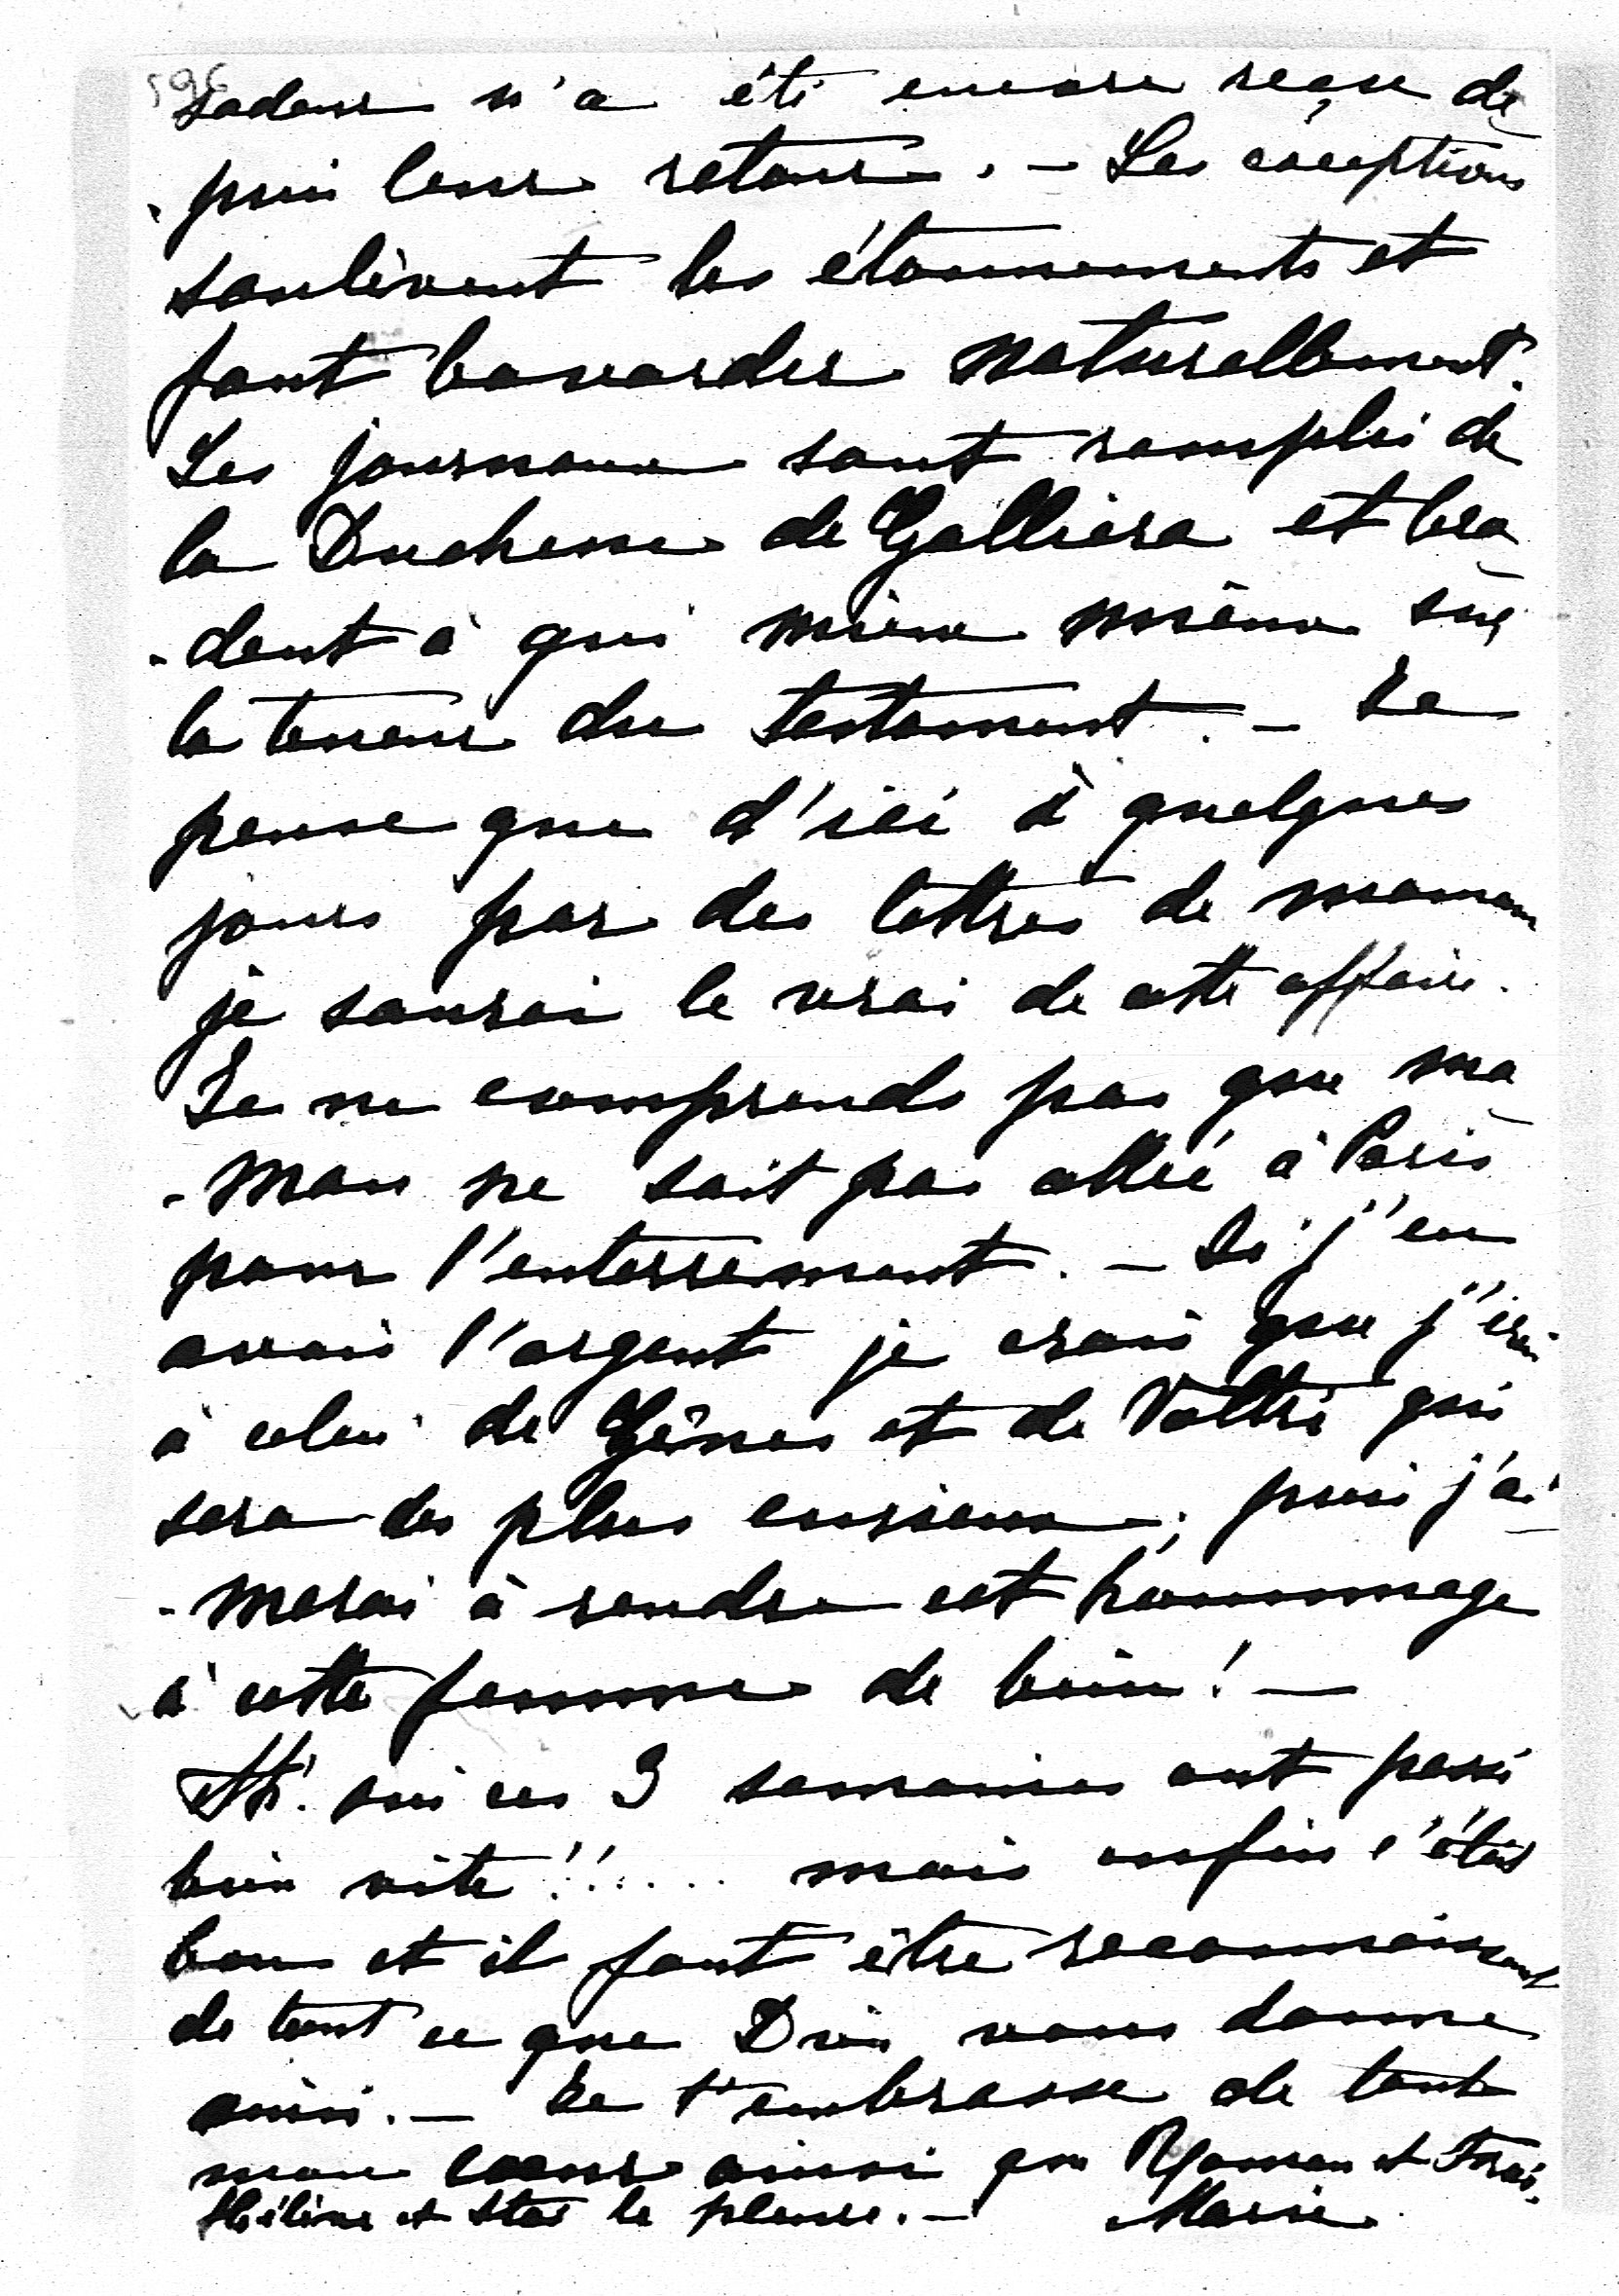 596
sadeur n'a été encore reçu de
-puis leur retour. - Les exceptions
soulèvent les étonnements et
font bavarder naturellement.
Les journaux sont remplis de
la Duchesse de Galliera et bro
-dent à qui mieux mieux sur
la teneur du testament. - Je
pense que d'ici à quelques
jours par des lettres de maman
je saurai le vrai de cette affaire.
Je ne comprends pas que ma
-man ne soit pas allée à Paris
pour l'enterrement. - Si j'en
avais l'argent je crois que j'irai
à celui de Gênes et de Voltri qui
sera des plus curieux; puis j'ai
-merai à rendre cet hommage
à cette femme de bien! -
Ah! oui ces 3 semaines ont passé
bien vite!!..... mais enfin c'était
bon et il faut être reconnaissant
de tout ce que Dieu nous donne
ainsi. - Je t'embrasse de tout
mon coeur ainsi que Roman et
Hélène et Stas le pleure. - Marie